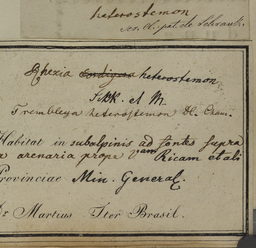 heterostemon
Schrank.
Rhexia cordigera heterostemon
Schk. et M.
Trembleya heterostemon D. Cham.
Habitat in subalpinis ad fontes supra
arenaria prope Ricam et ali
Provinciae Min. General.
Dr Martius Iter Brasil.